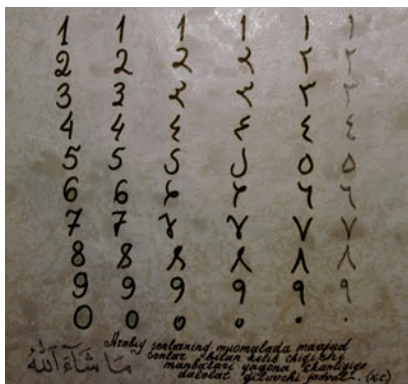 1 1 1 1 ١ ١
2 2 2 ٢ ٢ ٢
3 3 ٣ ٣ ٣ ٣
4 4 ٤ ٤ ٤ ٤
5 5 5 ٥ ٥
6 6 6 ٦ ٦ ٦
7 7 ٧ ٧ ٧ ٧
8 8 8 ٨ ٨ ٨
9 9 9 9 9 ٩
0 0 0 ٠ ٠ ٠
Arabiy sonlarning muomalada mavjud
sonlar bilan kelib chiqishi
manbalari yagona ekanligiga
dalolat qiluvchi jadval.
مَا شَاءَ اللّٰه